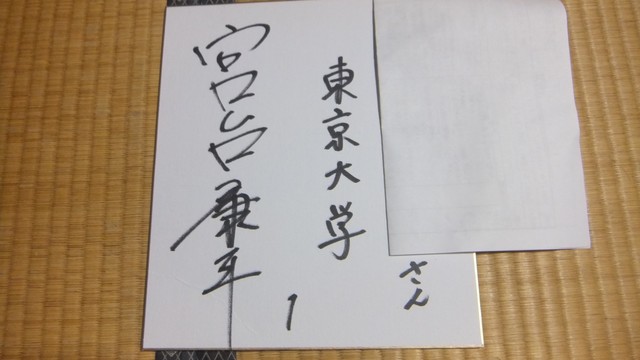 さん
東京大学
1
宮台康平